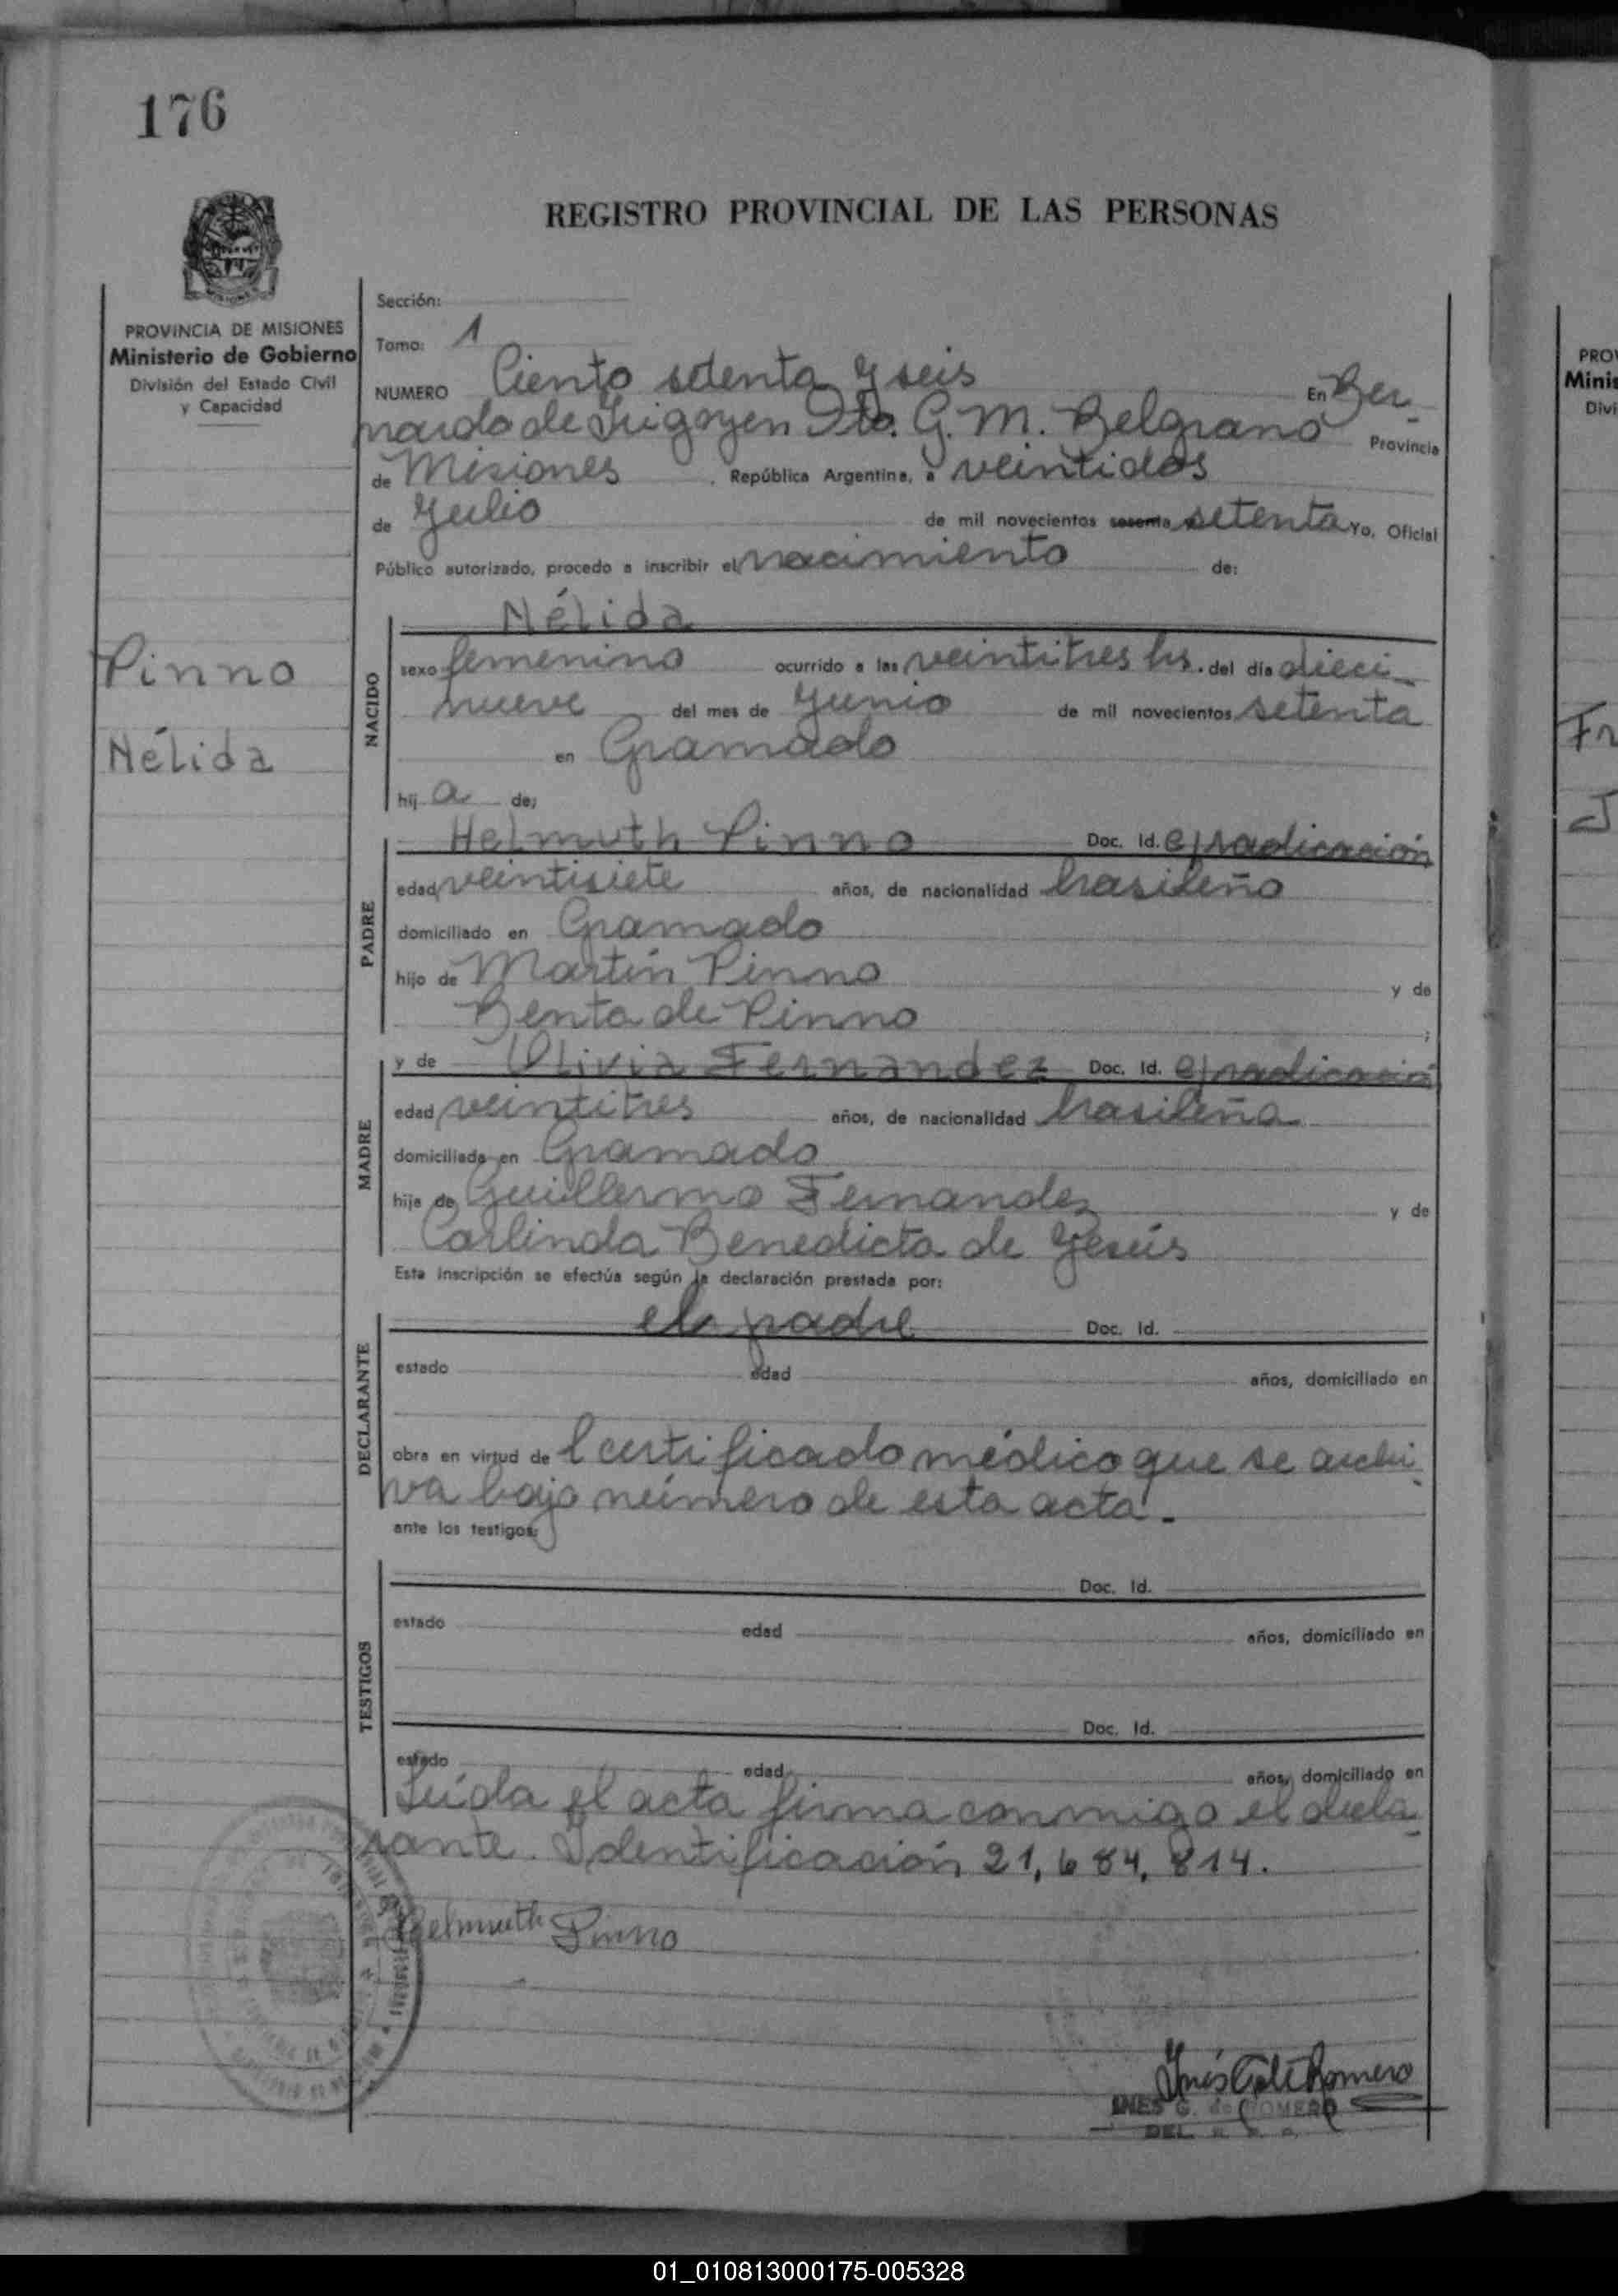 176
REGISTRO PROVINCIAL DE LAS PERSONAS
PROVINCIA DE MISIONES
Ministerio de Gobierno
División del Estado Civil
y Capacidad
Sección:
Tomo: 1
NUMERO Ciento setenta y seis En Ber-
nardo de Irigoyen Dto. G. M. Belgrano Provincia
de Misiones, República Argentina, a veintidos
de Julio de mil novecientos sesenta setenta Yo, Oficial
Público autorizado, procedo a inscribir el nacimiento de:
Pinno
Nélida
NACIDO
Nélida
sexo femenino ocurrido a las veintitres hs. del día dieci-
nueve del mes de Junio de mil novecientos setenta
en Gramado
hij a de;
PADRE
Helmuth Pinno Doc. Id. e/radicación
edad veintisiete años, de nacionalidad brasileño
domiciliado en Gramado
hijo de Martín Pinno y de
Benta de Pinno ;
MADRE
y de Olivia Fernandez Doc. Id. e/radicación
edad veintitres años, de nacionalidad brasileña
domiciliada en Gramado
hija de Guillermo Fernandez y de
Carlinda Benedicta de Jesús
Esta inscripción se efectúa según la declaración prestada por:
DECLARANTE
el padre Doc. Id.
estado edad años, domiciliado en
obra en virtud de l certificado médico que se archi-
va bajo número de esta acta.-
ante los testigos:
TESTIGOS
Doc. Id.
estado edad años, domiciliado en
Doc. Id.
estado edad años, domiciliado en
Leída el acta firma conmigo el decla-
rante. Identificación 21,684,814.
Helmuth Pinno
Inés Romero
INES G. de ROMERO
DEL.
PRO
Minis
Divi
Fr
J
01_010813000175-005328